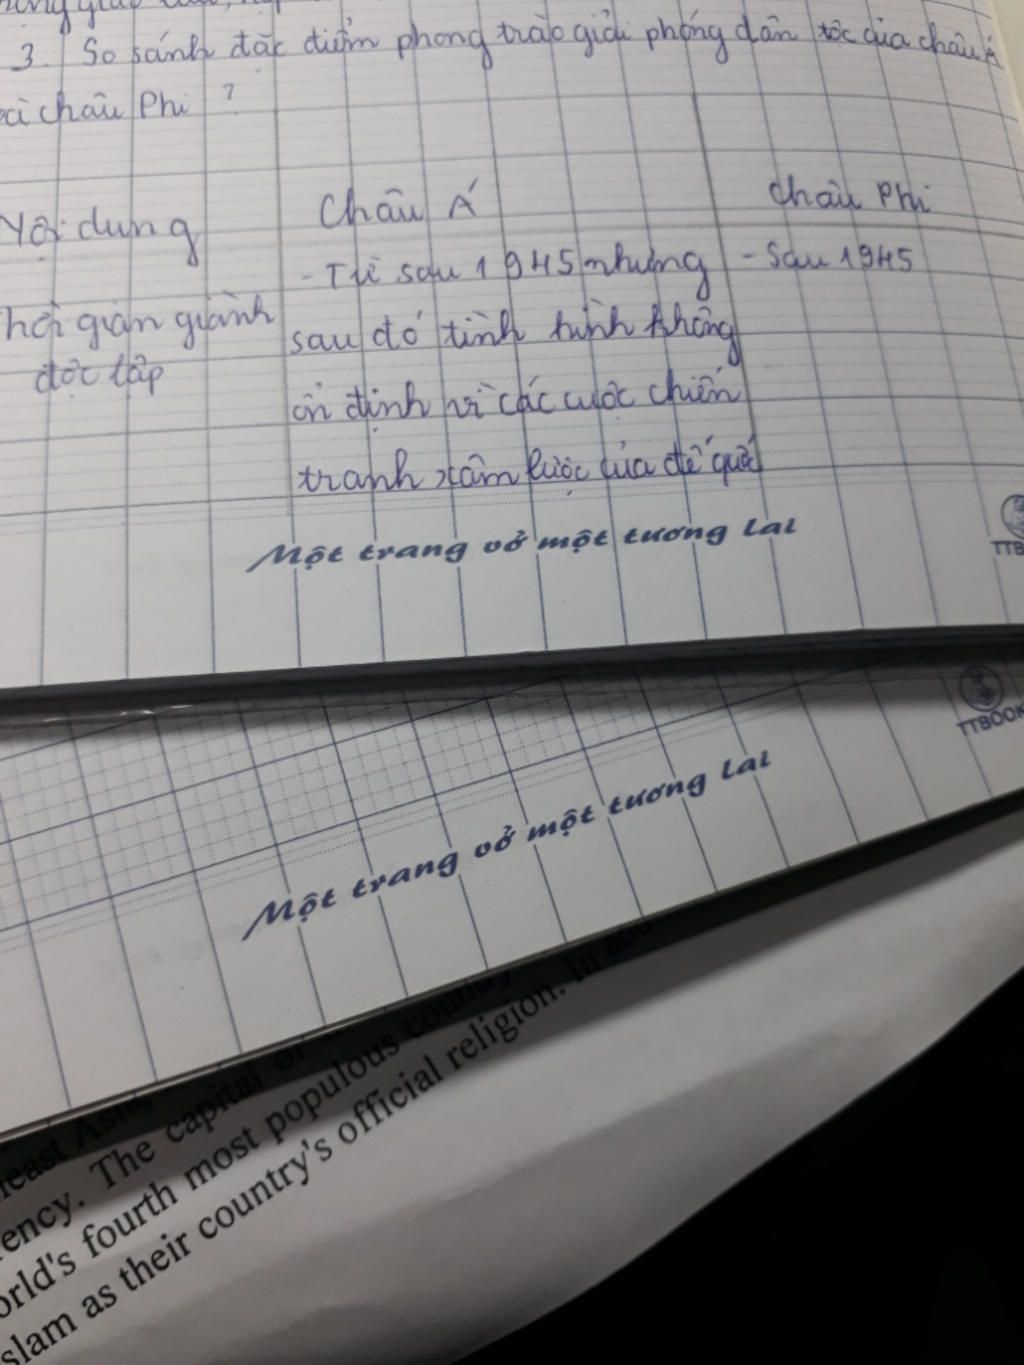 3. So sánh đặc điểm phong trào giải phóng dân tộc của châu Á
châu Phi ?
Nội dung
Châu Á
Châu Phi
- Từ sau 1945 nhưng
- Sau 1945
thời gian giành
sau đó tình hình không
độc lập
ổn định vì các cuộc chiến
tranh xâm lược của đế quốc
Một trang vở một tương lai
TTB
TTBOOK
Một trang vở một tương lai
least Asia
ency. The capital of
orld's fourth most populous country
slam as their country's official religion. In